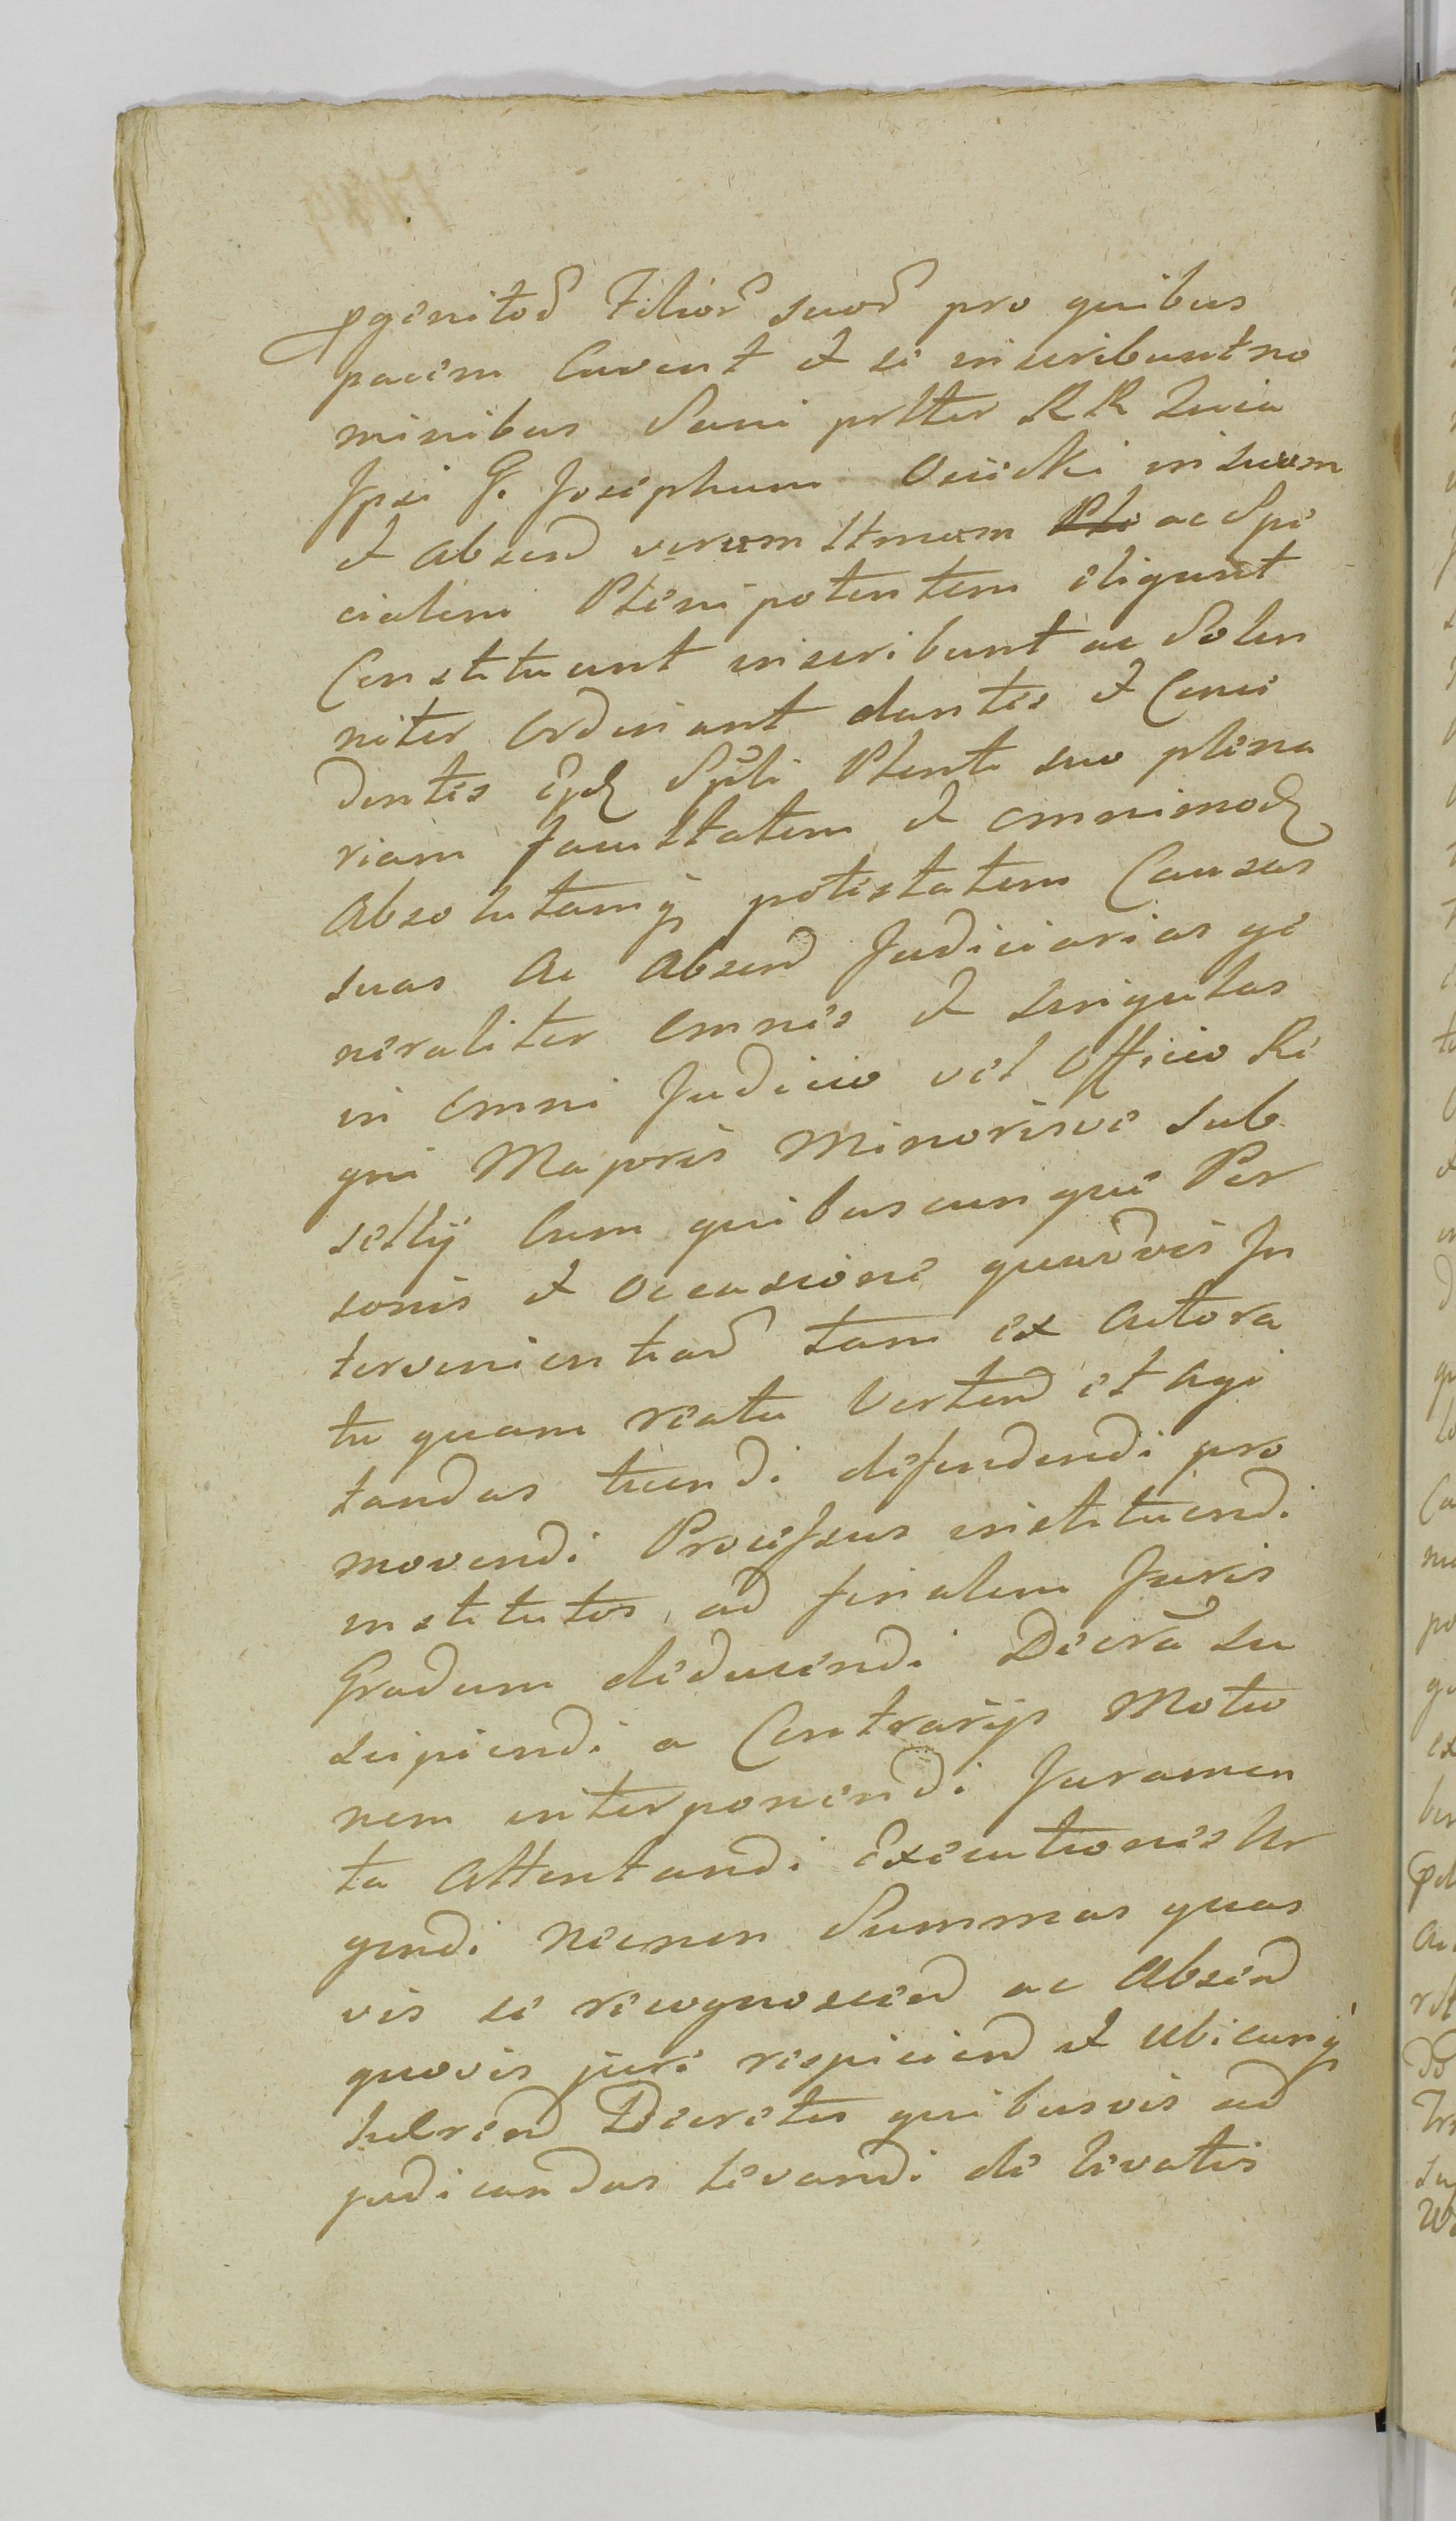 pgenitor Filior suor pro quibus
pacem Cavent et se inscribunt no
minibus Sani prltter RR Quia
Ipsi G. Josephum Osiecki in suum
et absend verum ltmum ac Spe
cialem Plenipotentem eligunt
Constituunt inscribunt ac Solen
niter Ordinant dantes et Conce
dentes Spli Plenti suo plena
riam facultatem et omnimod
absolutamq potestatem Causas
suas Ac Absend Judiciarias ge
neraliter omnes et singulas
in omni Judicio vel Officio Re
gni Majoris Minorisve sub
sellij Cum quibuscunque Per
sonis et Occasione quarvis In
tervenientiar tam ex Actora
tu quam reatu Vertend et Agi
tandas tuendi defendendi pro
movendi Processus instituendi
institutos ad finalem Juris
Gradum deducendi Decra su
scipiendi a Contrarijs Motio
nem interponendi Juramen
ta Attentandi Executiones Ur
gendi Necnon Summas quas
vis se recognoscend ac Absend
quovis jure respiciend et Ubicunq
haerend Decretis quibusvis ad
judicandas levandi de levatis